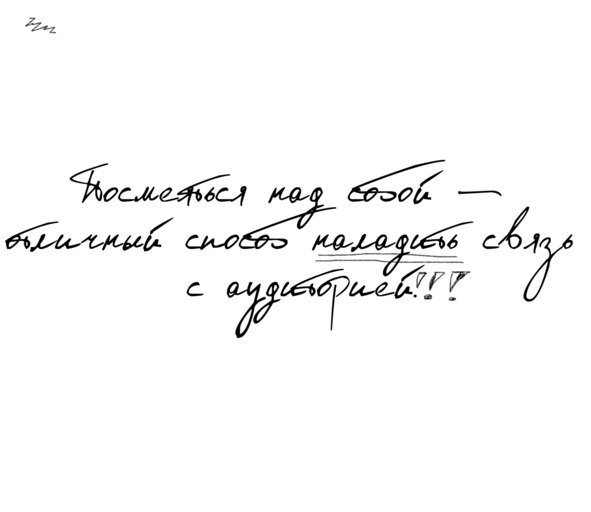 Посмеяться над собой —
отличный способ наладить связь
с аудиторией!!!